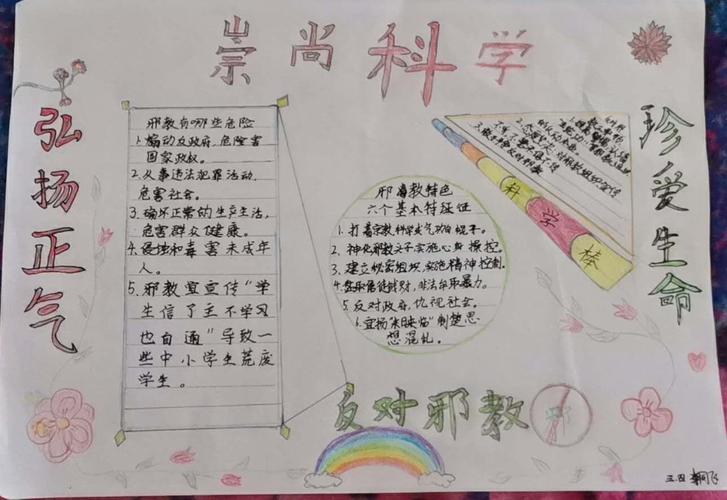 崇尚科学
弘扬正气
珍爱生命
邪教有哪些危险
1.煽动反政府,危险害
国家政权。
2.从事违法犯罪活动,
危害社会。
3.破坏正常的生产生活,
危害群众健康。
4.侵蚀和毒害未成年
人。
5.邪教宣宣传“学
生信了主不学习
也自通”导致一
些中小学生荒废
学生。
科学棒
邪教特色
六个基本特征
1.打着宗教科学或气功的幌子。
2.神化邪教头子实施心身操控。
3.建立秘密组织,实施精神控制。
4.骗取信徒钱财,非法牟取暴力。
5.反对政府,仇视社会。
6.宣扬“末日来临”制楚思
想混乱。
反对邪教
三.四